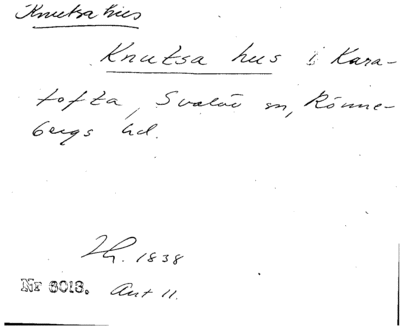 Knutsa hus
Knutsa hus i Kara-
tofta, Svalöv sn, Rönne-
bergs hd.
Th. 1838
Nr 6018. Ant 11.